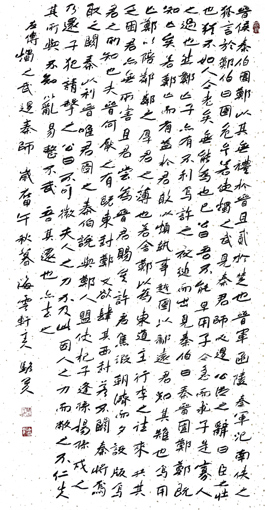 晉侯秦伯圍鄭以其無禮於晉且貳於楚也晉軍函陵秦軍氾南佚之
狐言於鄭伯曰國危矣若使燭之武見秦君師必退公從之辭曰臣之壯
也猶不如人今老矣無能為也已公曰吾不能早用子今急而求子是寡人
之過也然鄭亡子亦有不利焉許之夜縋而出見秦伯曰秦晉圍鄭鄭既
知亡矣若鄭亡而有益於君敢以煩執事越國以鄙遠君知其難也焉用
亡鄭以陪鄰鄰之厚君之薄也若舍鄭以為東道主行李之往來共其
乏困君亦無所害且君嘗為晉君賜矣許君焦瑕朝濟而夕設版焉
君之所知也夫晉何厭之有既東封鄭又欲肆其西封若不闕秦將焉
取之闕秦以利晉唯君圖之秦伯說與鄭人盟使杞子逢孫楊孫戍之
乃還子犯請擊之公曰不可微夫人之力不及此因人之力而敝之不仁失
其所與不知以亂易整不武吾其還也亦去之
左傳燭之武退秦師 午秋暮海雲軒主